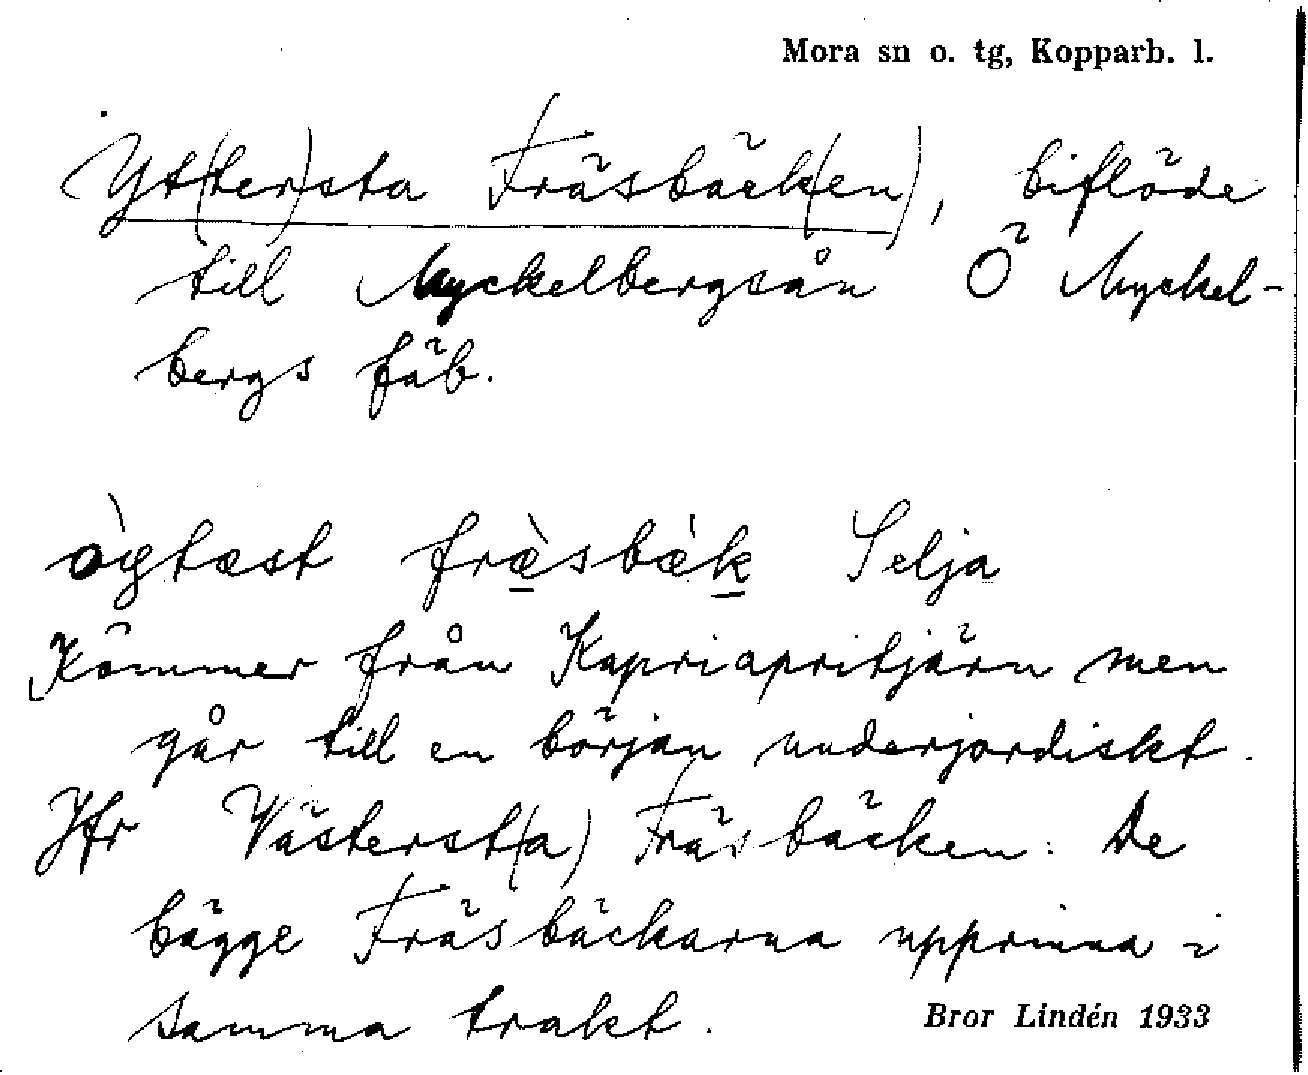 Mora sn o. tg, Kopparb. l.
Yt(ter)sta Fräsbäck(en), biflöde
till Myckelbergsån Ö Myckel-
bergs fäb.
fræ̀sbæ̀k Selja
Kommer från Kapriapritjärn men
går till en början underjordiskt.
Jfr Västerst(a) Fräsbäcken. De
bägge Fräsbäckarna upprinna i
samma trakt.
Bror Lindén 1933